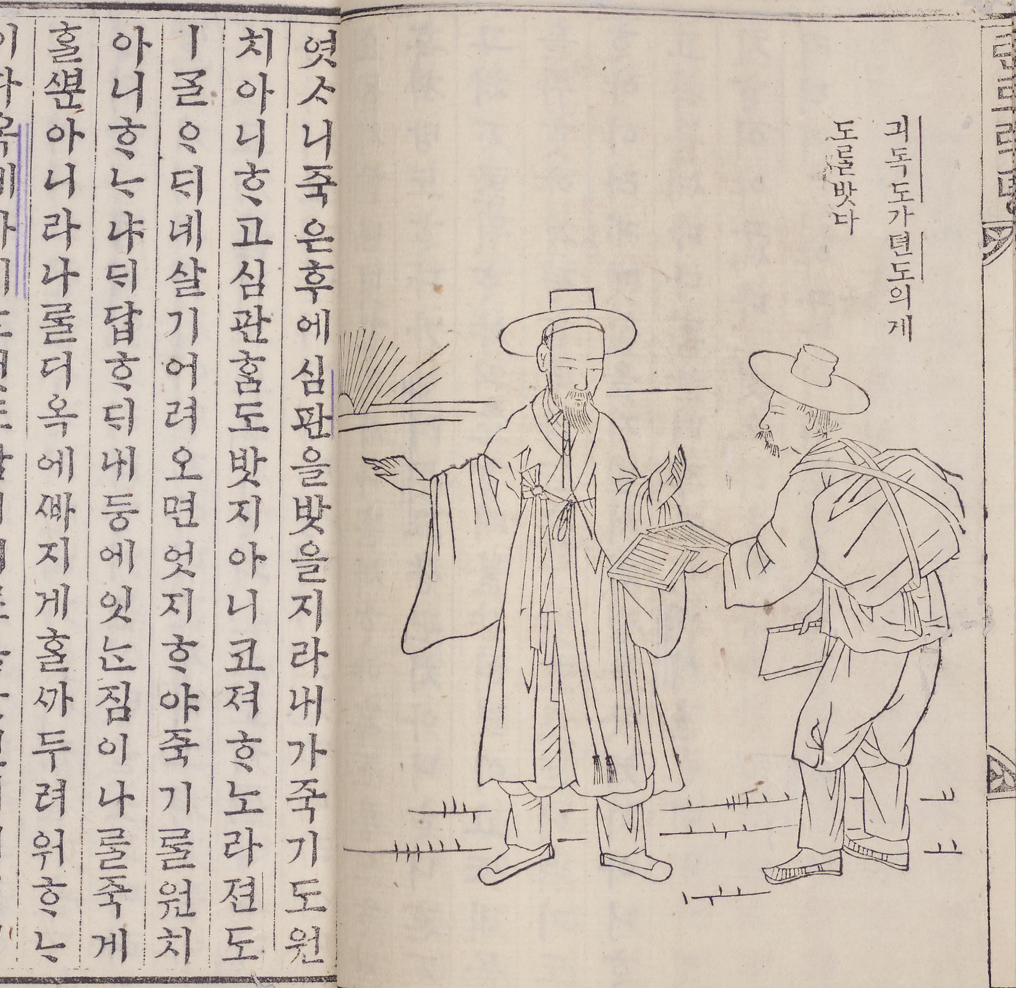 텬로력뎡
긔독도가뎐도의게
도ᄅᆞᆯ밧다
엿ᄉᆞ니죽은후에심판을밧을지라내가죽기도원
치아니ᄒᆞ고심판ᄒᆞᆷ도밧지아니코져ᄒᆞ노라젼도
ㅣᄀᆞᆯᄋᆞᄃᆡ네살기어려오면엇지ᄒᆞ야죽기ᄅᆞᆯ원치
아니ᄒᆞᄂᆞ냐ᄃᆡ답ᄒᆞᄃᆡ내등에잇ᄂᆞᆫ짐이나ᄅᆞᆯ죽게
ᄒᆞᆯᄲᅮᆫ아니라나ᄅᆞᆯ더옥에ᄲᅡ지게ᄒᆞᆯᄭᅡ두려워ᄒᆞᄂᆞ